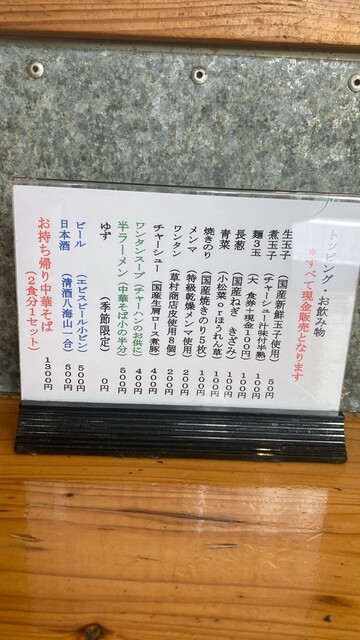 トッピング・お飲み物
＊すべて現金販売となります
生玉子 （国産新鮮玉子使用） 50円
煮玉子 （チャーシュー汁味付半熟） 100円
麺３玉 （大 食券＋現金100円）
長葱 （国産ねぎ きざみ） 100円
青菜 （小松菜orほうれん草） 100円
焼きのり （国産焼きのり５枚） 100円
メンマ （特級乾燥メンマ使用） 200円
ワンタン （草村商店皮使用８個） 200円
チャーシュー （国産生肩ロース煮豚） 400円
ワンタンスープ （チャーハンのお供に） 400円
半ラーメン （中華そば小の半分） 500円
ゆず （季節限定） 0円
ビール （エビスビール小ビン） 500円
日本酒 （清酒八海山一合） 500円
お持ち帰り中華そば
（２食分１セット） 1300円